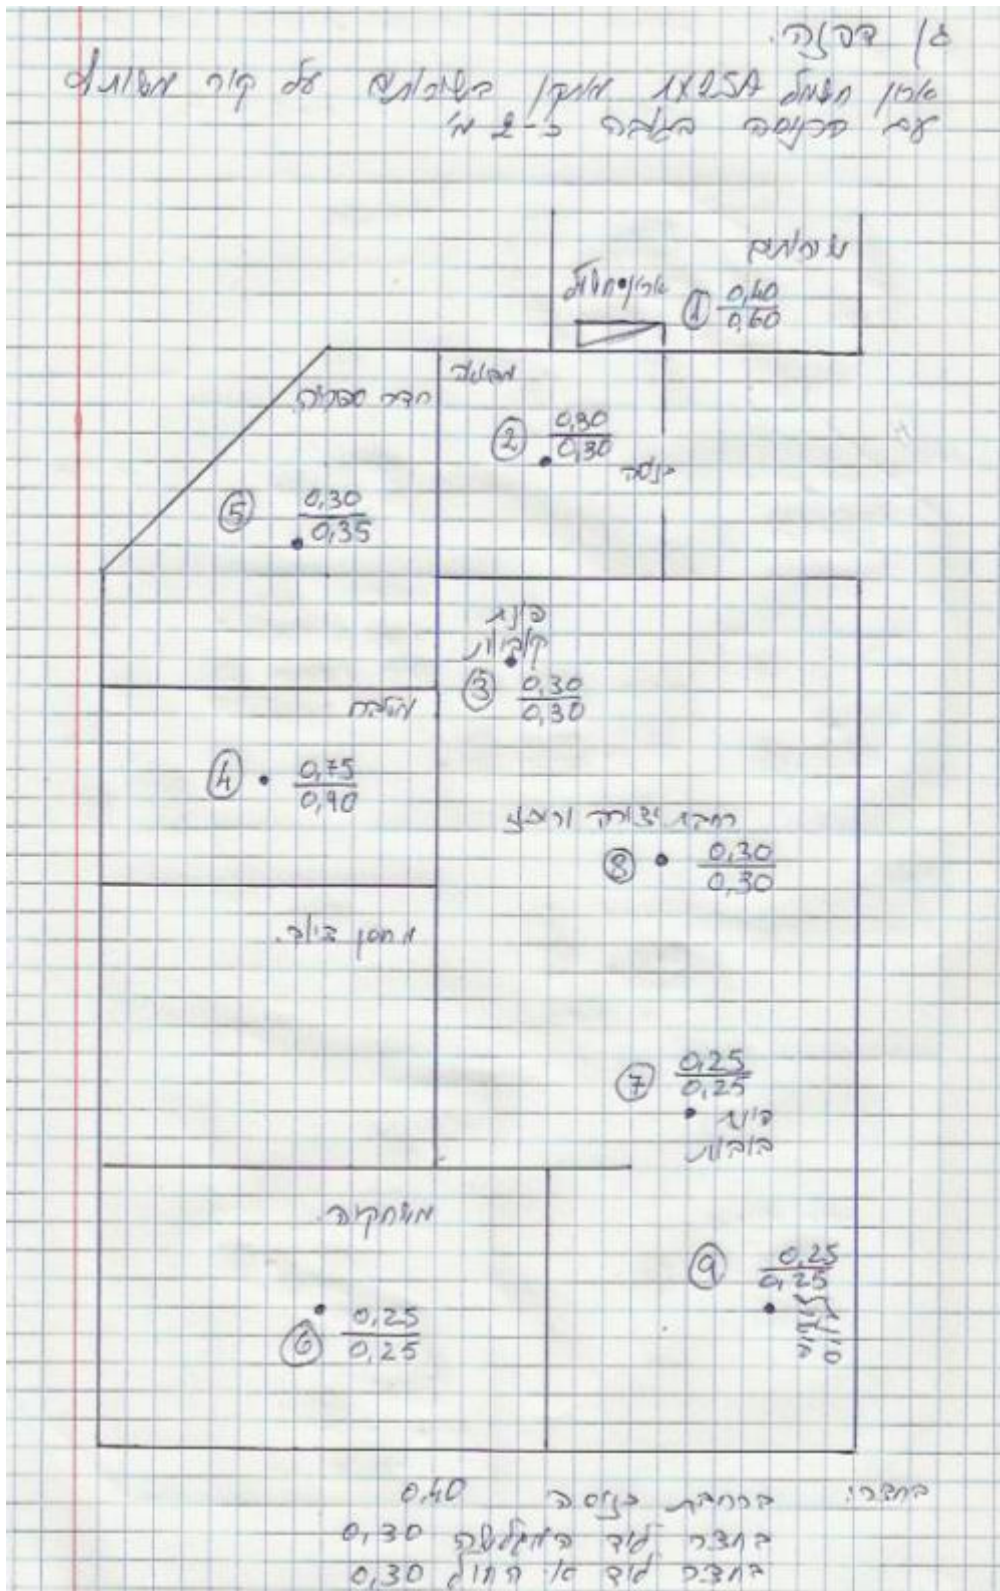 גן דפנה.
ארון חשמל 1X25A מותקן בשירותים על קיר משותף
עם הכניסה בגובה כ-2 מ'
שירותים
ארון חשמל
1 0,40
0,60
מבואה
חדר ספריה
2 0,30
0,30
כניסה
5 0,30
0,35
פינת
קוביות
3 0,30
0,30
מטבח
4 0,75
0,90
רחבת יצירה וריכוז
8 0,30
0,30
מחסן ביוב.
7 0,25
0,25
פינת
בובות
משחקיה.
9 0,25
0,25
6 0,25
0,25
בחצר: ברחבת כניסה 0,40
בחצר ליד המגלשה 0,30
בחצר ליד א. החול 0,30